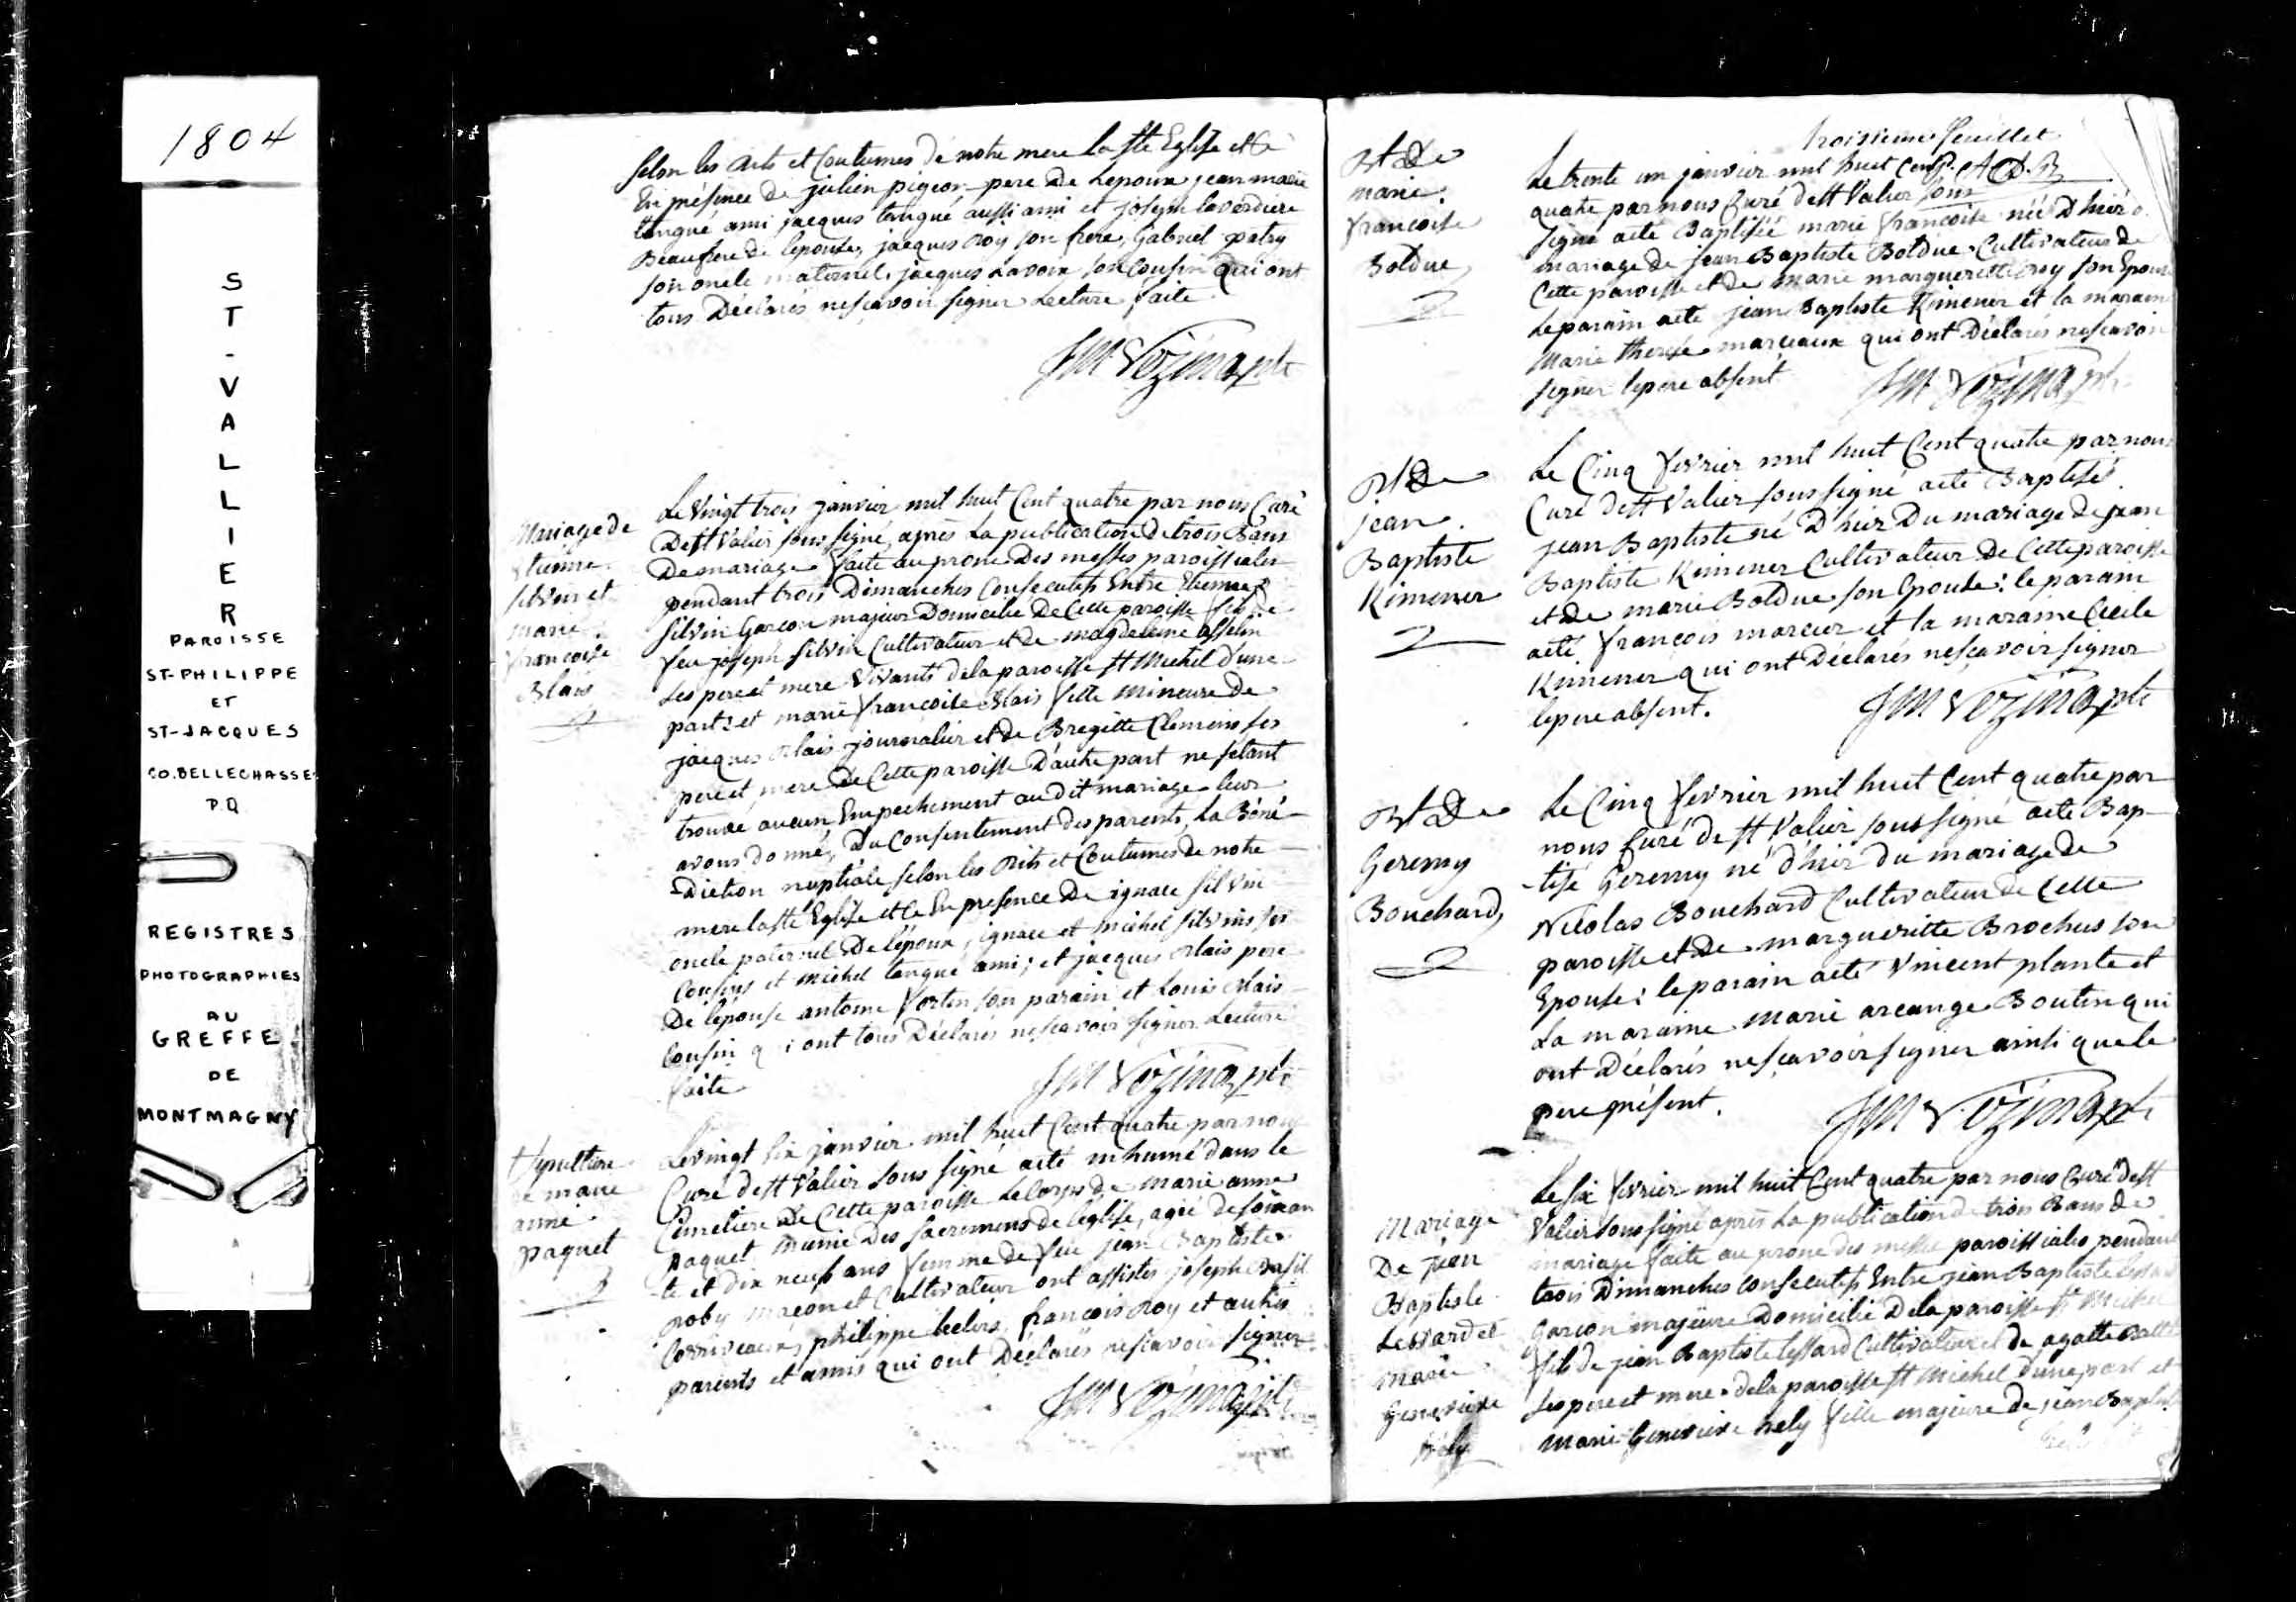 1804
ST-VALLIER
PAROISSE
ST-PHILIPPE
ET
ST-JACQUES
CO. BELLECHASSE
P.Q.
REGISTRES
PHOTOGRAPHIES
AU
GREFFE
DE
MONTMAGNY
selon les Rits et Coutumes de notre mere la Ste Eglise et Ce
En présence de julien pigeon pere De Lepoux jean marie
tangué ami jacques tangué aussi ami et joseph laverdiere
Beaufrere de lepouse, jacques Roy son frere, Gabriel patry
son oncle maternel, jacques Lavoix son Cousin qui ont
tous Déclarés nesçavoir signer Lecture faite.
Mariage de
Etienne
silvin et
marie
francoise
Blais
Le vingt trois janvier mil huit Cent quatre par nous Curé
De St Valier sous signé, après La publication De trois Bans
De mariage faite au prone Des messes paroissiales
pendant trois Dimanches Consecutifs Entre Etienne
silvin Garcon majeur Domicilié De Cette paroisse fils de
feu joseph silvin Cultivateur et de magdeleine asselin
ses pere et mere vivants de la paroisse St Michel d'une
part: et marie francoise Blais fille Mineure de
jacques Blais journalier et de Bregitte Clemens ses
pere et mere de Cette paroisse D'autre part ne setant
trouve aucun Empechement au dit mariage leur
avons donné, Du Consentement des parents, La Béné-
-diction nuptiale selon les Rits et Coutumes de notre
mere la Ste Eglise et Ce En presence De ignace silvin
oncle paternel De l'époux, ignace et michel silvins ses
Cousins et Michel tangué ami; et jacques Blais pere
De l'épouse antoine fortin son parain et Louis Blais
Cousin qui ont tous Déclarés nesçavoir signer Lecture
faite
Sepulture
de marie
anne
paquet
Le vingt six janvier mil huit Cent quatre par nous
Curé de St Valier sous signé aeté inhumé dans le
Cimetiere de Cette paroisse Le Corps de marie anne
paquet munie Des sacremens de leglise, agée de soixan
te et dix neuf ans femme de feu jean Baptiste
roby maçon et Cultivateur ont assistés joseph
Corriveaux, philippe francois Roy et autres
parents et amis qui ont Déclarés nesçavoir signer
troisieme feuillet
Bt De
marie
francoise
Bolduc
Le trente un janvier mil huit Cent
quatre par nous Curé de St Valier sous
signé aeté Baptisée marie francoise née D'hier
mariage de jean Baptiste Bolduc Cultivateur de
Cette paroisse et de marie margueritte Roy son Epouse
Le parain aeté jean Baptiste Kimener et la maraine
Marie therese marceaux qui ont Déclarés nesçavoir
signer le pere absent
Bt De
jean
Baptiste
Kimener
Le Cinq fevrier mil huit Cent quatre par nous
Curé de St Valier sous signé aeté Baptisé
jean Baptiste né D'hier Du mariage de jean
Baptiste Kimener Cultivateur De Cette paroisse
et de marie Bolduc son Epouse: le parain
aeté francois mercier et la maraine Cecile
Kimener qui ont Déclarés nesçavoir signer
le pere absent.
Bt De
Geremy
Bouchard
Le Cinq fevrier mil huit Cent quatre par
nous Curé de St Valier sous signé aeté Bap-
-tisé Geremy né d'hier du mariage de
Nicolas Bouchard Cultivateur de Cette
paroisse et de margueritte Brochus son
Epouse: le parain aeté Vincent plante et
La maraine Marie arcange Boutin qui
ont Déclarés nesçavoir signer ainsi que le
pere présent.
Mariage
De jean
Baptiste
Lessard et
marie
Genevieve
hely
Le six fevrier mil huit Cent quatre par nous Curé de St
Valier sous signé après La publication de trois Bans de
mariage faite au prone des messes paroissiales pendant
trois Dimanches consecutifs Entre jean Baptiste Lessard
garcon majeure Domicilié De la paroisse St Michel
fils de jean Baptiste lessard Cultivateur et de agatte
ses pere et mere de la paroisse St Michel d'une part et
marie Genevieve hely fille majeure de jean Baptiste